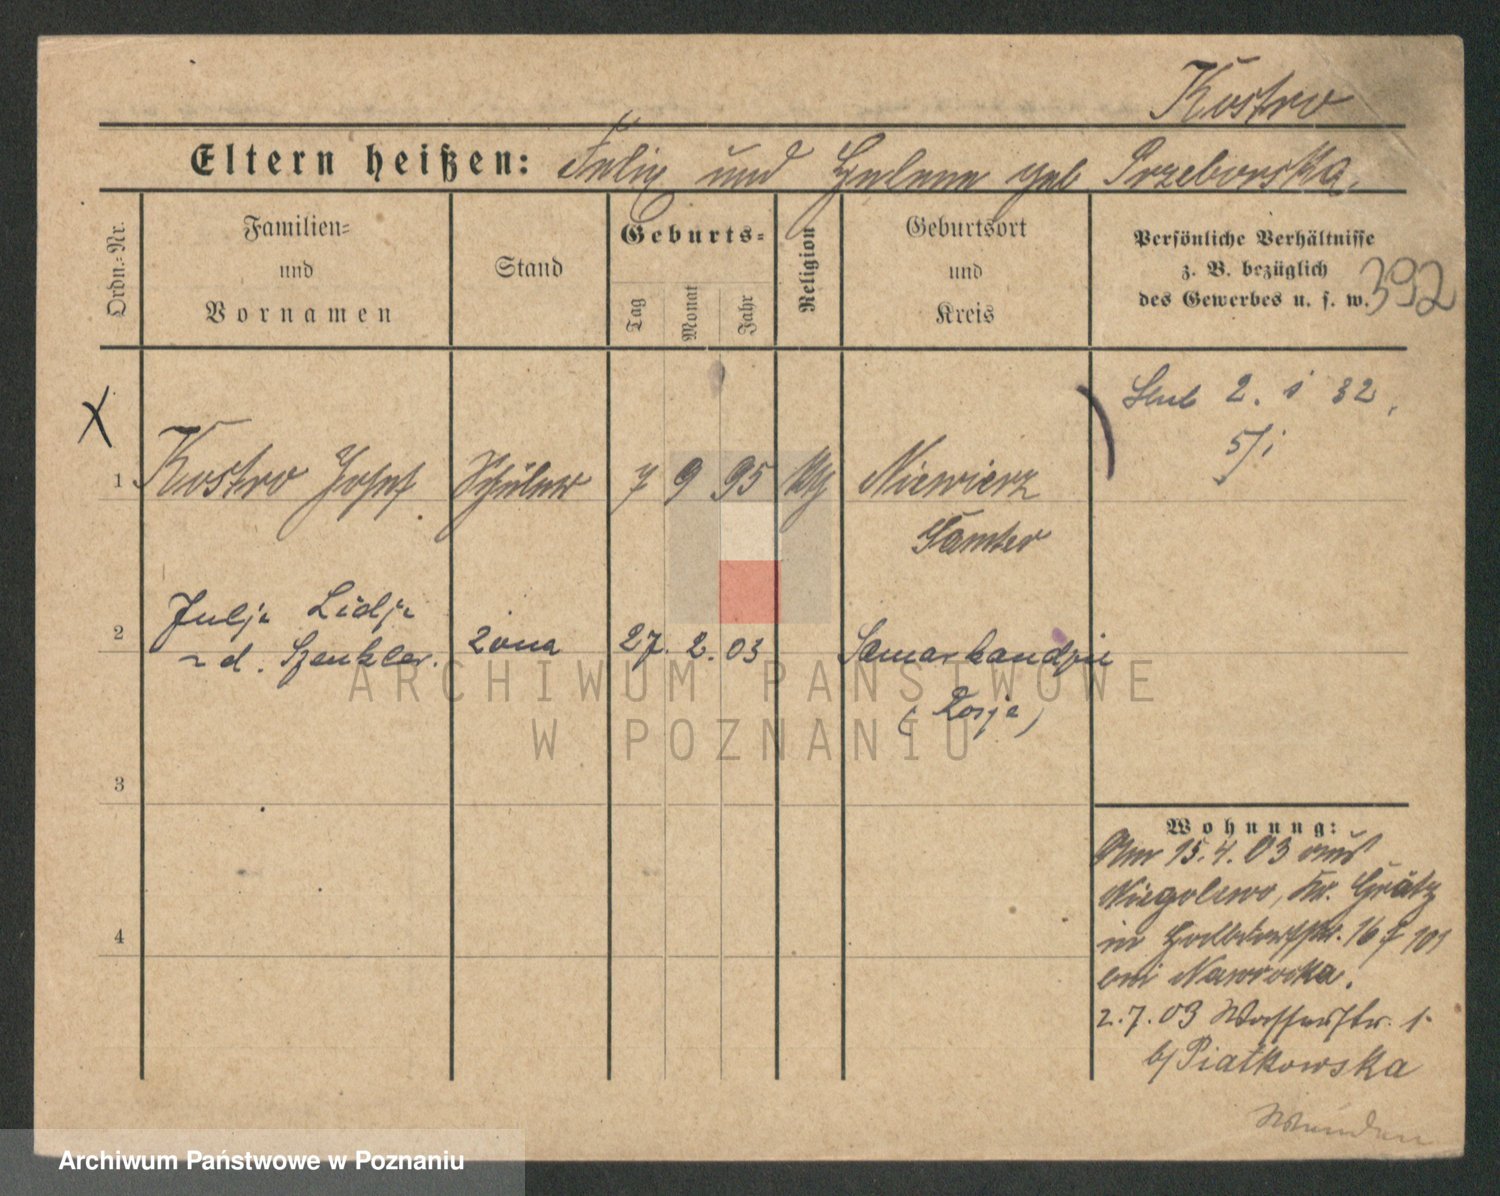 Kostro
Eltern heißen: Felix und Helene geb Przeborska.
Ordn.-Nr.
Familien-
und
Vornamen
Stand
Geburts-
Tag
Monat
Jahr
Religion
Geburtsort
und
Kreis
Persönliche Verhältnisse
z. B. bezüglich
des Gewerbes u. s. w.
392
X
Slub 2. i 32,
5/i
1 Kostro Josef Schüler 7 9 95 Niewierz
Samter
2 Julja Lidja
z d. Szenkler. żona 27. 2. 03 Samarkandzie
(Rosja)
3
4
Wohnung:
15.4.03 aus
Niegolewo, Kr. Grätz
in 16 101
bei Nawrocka.
2.7.03 Wasserstr. 1.
b/ Piatkowska
ARCHIWUM PAŃSTWOWE
W POZNANIU
Archiwum Państwowe w Poznaniu